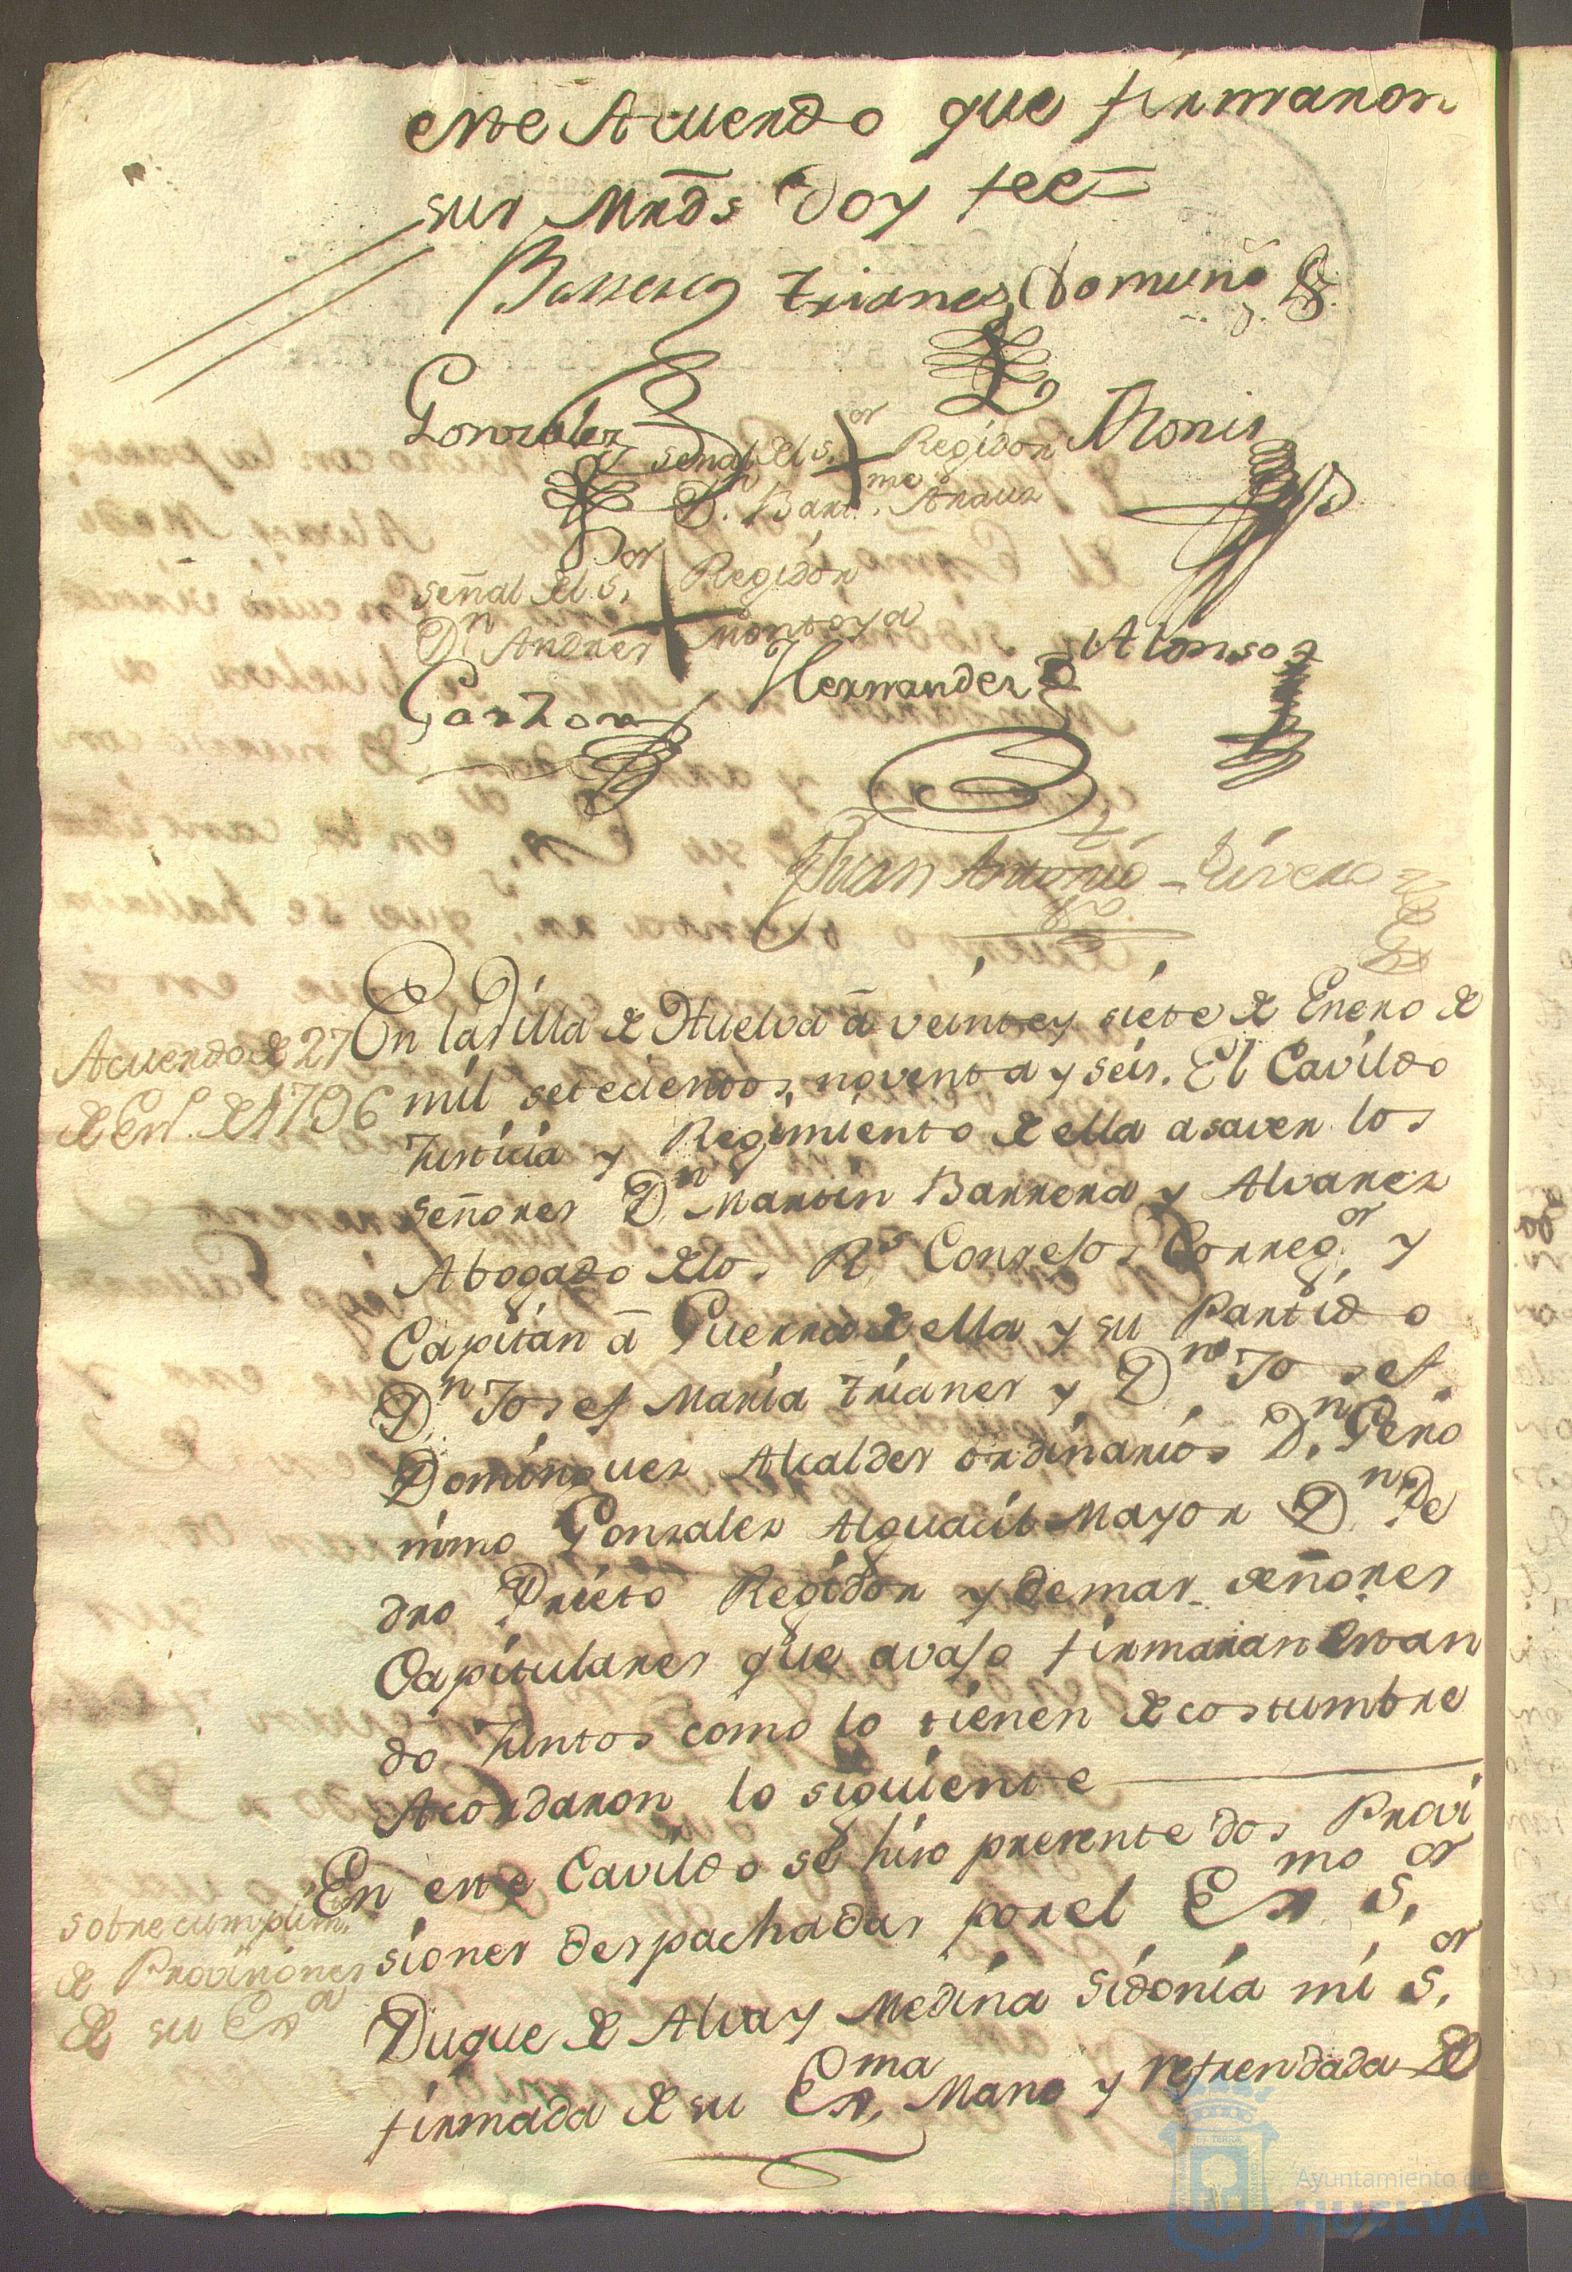 este Acuerdo que firmaron
sus Mrds doy fee=
Barrera Trianes Doming.
Gonzalez
señal del s.or Regidor
D.n Bart.me Arauz
Monis
señal del s.or Regidor
D.n Andres Montoya
Garzon
Hernandez
Alonso
Juan Antonio Rivera
Acuerdo de 27
de En.o de 1796
En la Villa de Huelva â veinte y siete de Enero de
mil setecientos, noventa y seis. El Cavildo
Justicia y Regimiento de ella a saver los
señores D.n Martin Barrera y Alvarez
Abogado de los R.s Consejos Correg.or y
Capitan â Guerra de ella y su Partido
D.n Josef Maria Trianes y D.n Josef
Dominguez Alcaldes ordinarios D.n Gero
nimo Gonzalez Alguacil Mayor D.n Pe
dro Prieto Regidor y demas señores
Capitulares que avajo firmaran estan
do Juntos como lo tienen de costumbre
Acordaron lo siguiente
sobre cumplim.to
de Provisiones
de su Ex.a
En este Cavildo se hizo presente dos Provi
siones despachadas por el Ex.mo S.or
Duque de Alva y Medina Sidonia mi S.or
firmada de su Ex.ma Mano y refrendada de
Ayuntamiento de
HUELVA